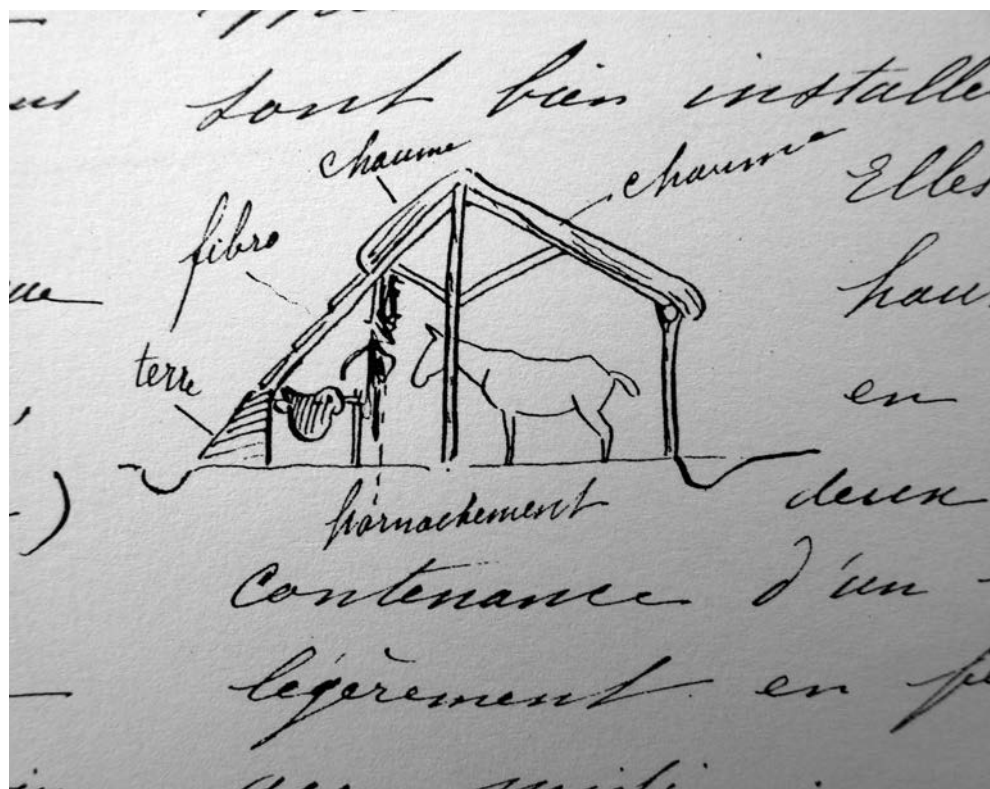 sont bien installe
chaume
chaume
Elles
fibro
hau
terre
en
harnachement
deux
contenance d'un
légèrement en pe